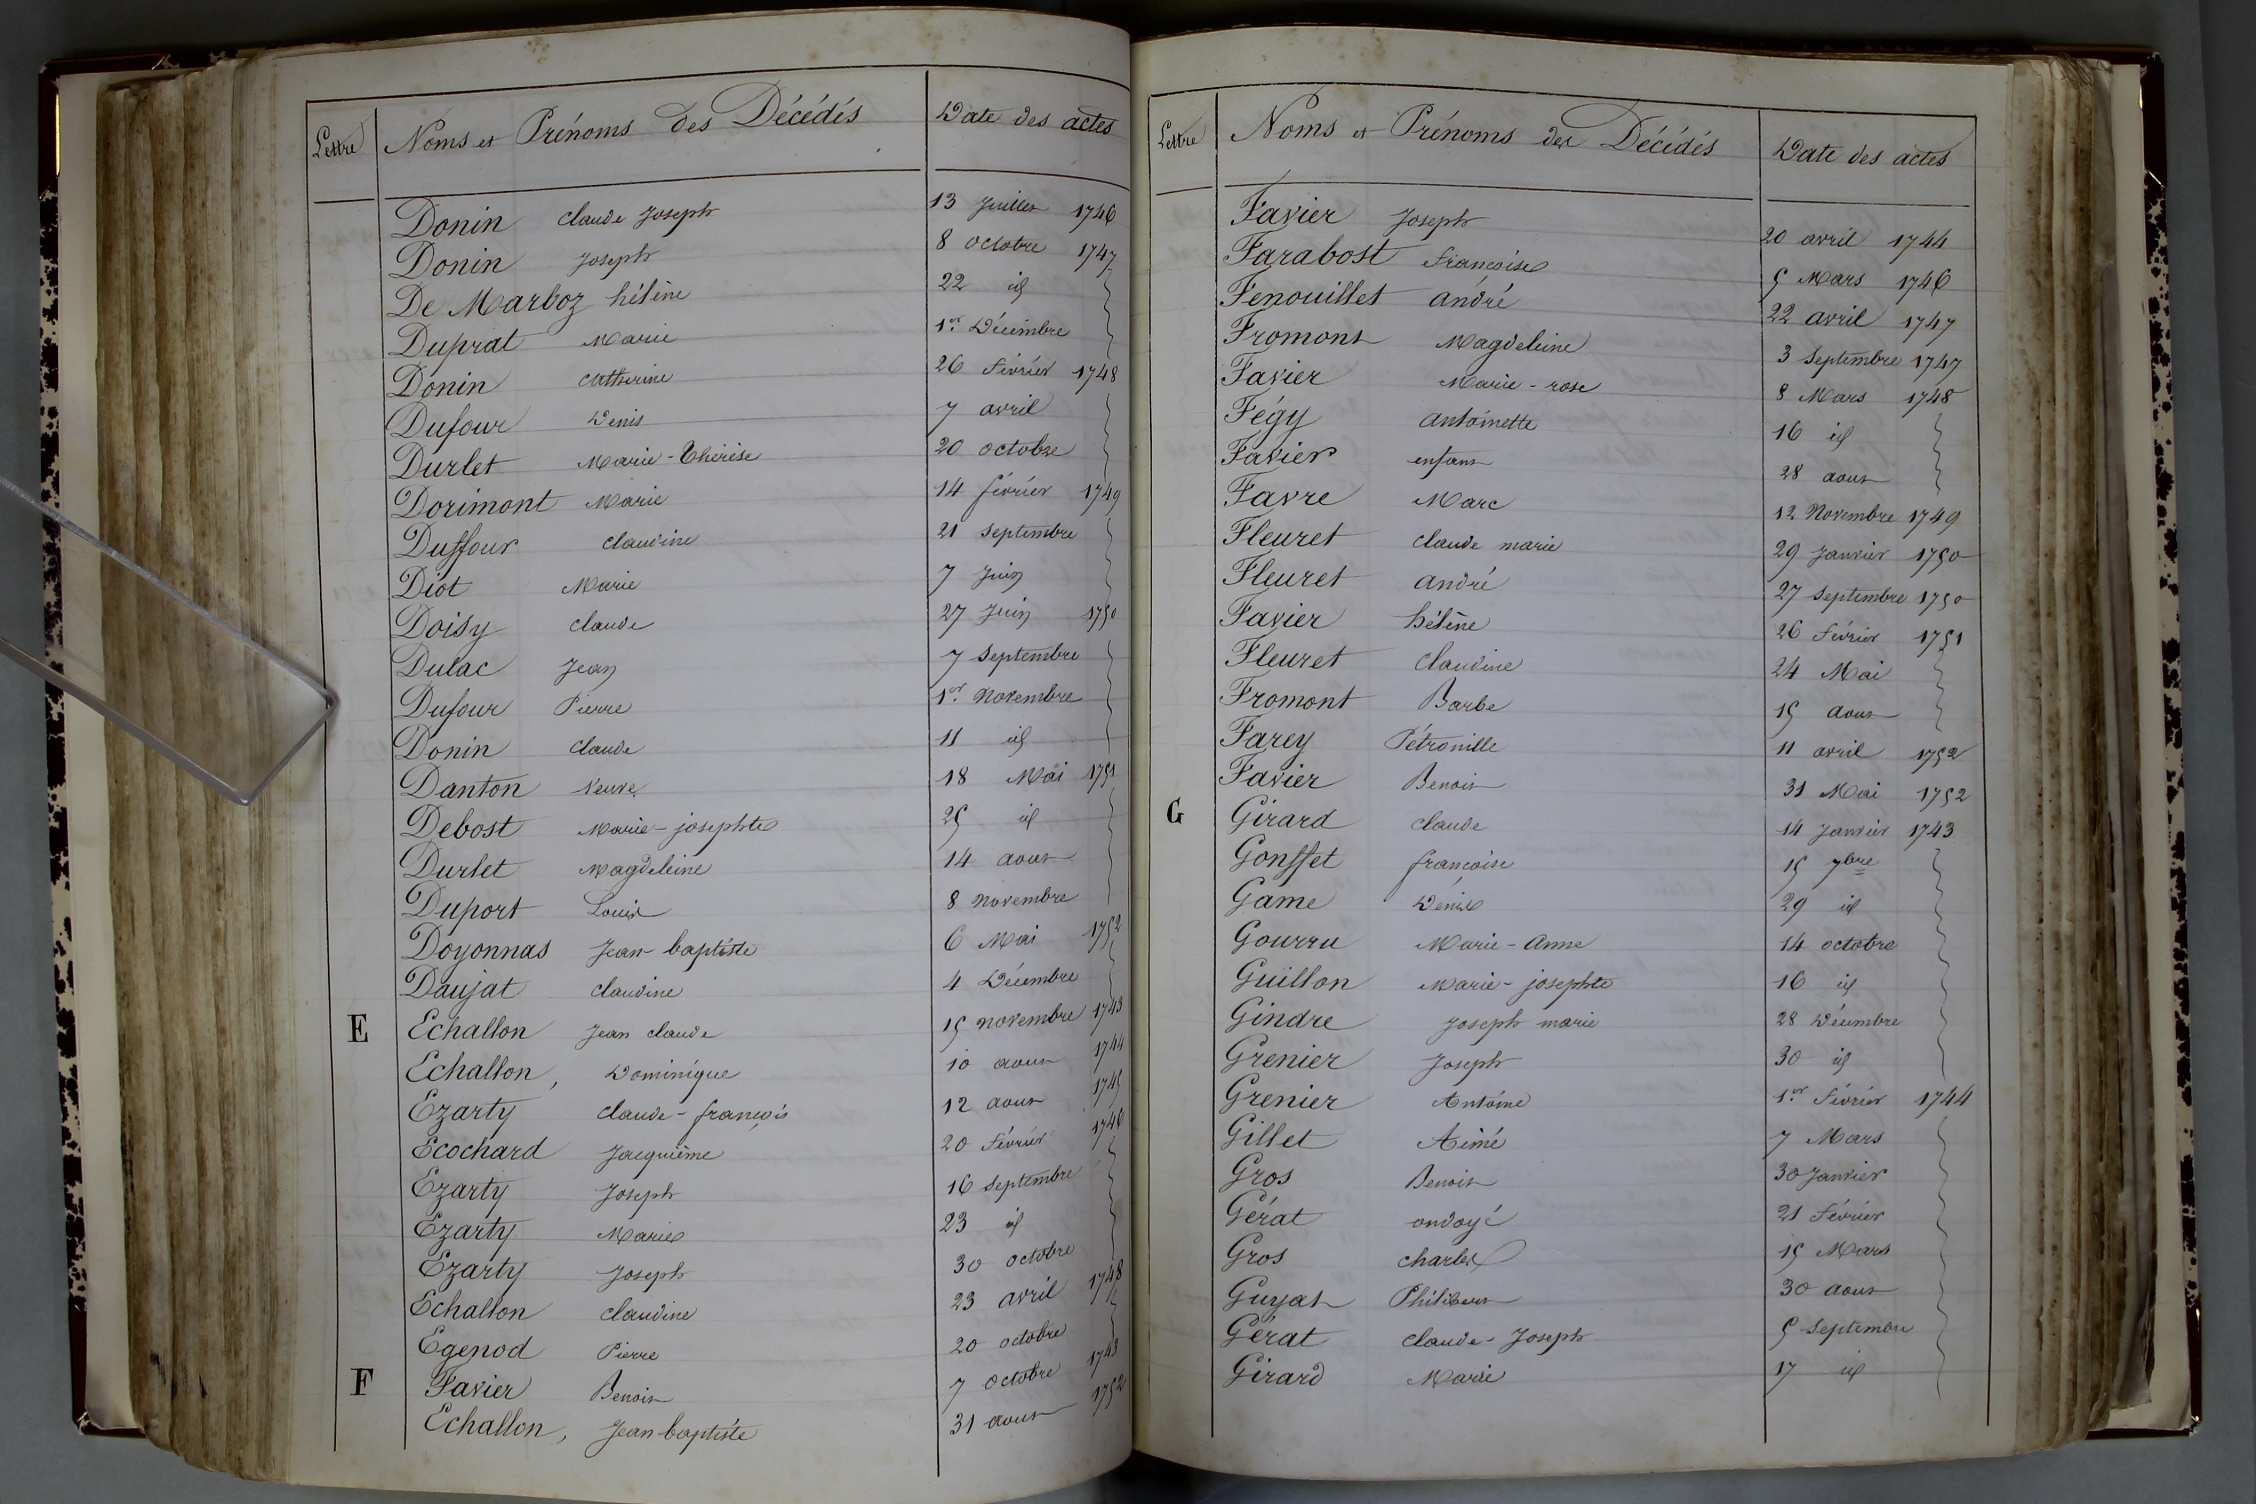 Lettre Noms et Prénoms des Décédés Date des actes
Donin Claude Joseph 13 Juillet 1746
Donin Joseph 8 octobre 1747
De Marboz hélène 22 id
Duprat Marie 1er Décembre
Donin Catherine 26 février 1748
Dufour Denis 7 avril
Durlet Marie-Thérèse 20 octobre
Dorimont Marie 14 février 1749
Duffour Claudine 21 septembre
Diot Marie 7 Juin
Doisy Claude 27 Juin 1750
Dulac Jean 7 Septembre
Dufour Pierre 1er Novembre
Donin Claude 11 id
Danton Veuve 18 Mai 1751
Debost Marie-josephte 25 id
Durlet Magdeleine 14 aout
Duport Louis 8 novembre
Doyonnas Jean-baptiste 6 Mai 1752
Daujat Claudine 4 Décembre
E Echallon Jean claude 15 novembre 1743
Echallon, Dominique 10 aout 1744
Ezarty Claude-françois 12 aout 1745
Ecochard Jacquème 20 février 1746
Ezarty Joseph 16 septembre
Ezarty Marie 23 id
Ezarty Joseph 30 octobre
Echallon Claudine 23 avril 1748
Egenod Pierre 20 octobre
F Favier Benoit 7 octobre 1743
Echallon, Jean-baptiste 31 aout 1752
Lettre Noms et Prénoms des Décédés Date des actes
Favier Joseph 20 avril 1744
Farabost françoise 5 Mars 1746
Fenouillet andré 22 avril 1747
Fromont Magdeleine 3 Septembre 1747
Favier Marie-rose 8 Mars 1748
Fégy antoinette 16 id
Favier enfant 28 aout
Favre Marc 12 Novembre 1749
Fleuret claude marie 29 Janvier 1750
Fleuret andré 27 septembre 1750
Favier hélène 26 février 1751
Fleuret Claudine 24 Mai
Fromont Barbe 15 aout
Farey Pétronille 11 avril 1752
Favier Benoit 31 Mai 1752
G Girard Claude 14 Janvier 1743
Gonffet françoise 15 7bre
Game Dénis 29 id
Gourru Marie-Anne 14 octobre
Guillon Marie-josephte 16 id
Gindre Joseph marie 28 Décembre
Grenier Joseph 30 id
Grenier Antoine 1er Février 1744
Gillet Aimé 7 Mars
Gros Benoit 30 Janvier
Gérat ondoyé 21 Février
Gros charles 15 Mars
Guyat Philibert 30 aout
Gérat Claude-Joseph 5 Septembre
Girard Marie 17 id